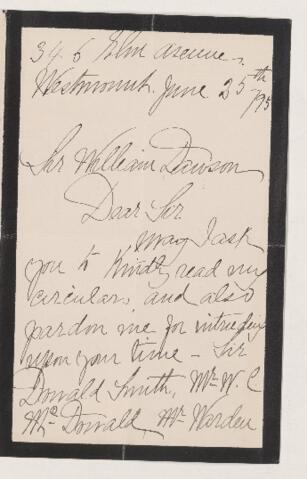 345 Elm Avenue.
Westmount, June 25th /95
Sir William Dawson
Dear Sir
May I ask
you to kindly read my
circulars and also
pardon me for intrudeing
upon your time - Sir
Donald Smith, Mr W. C
McDonald, Mr Warden